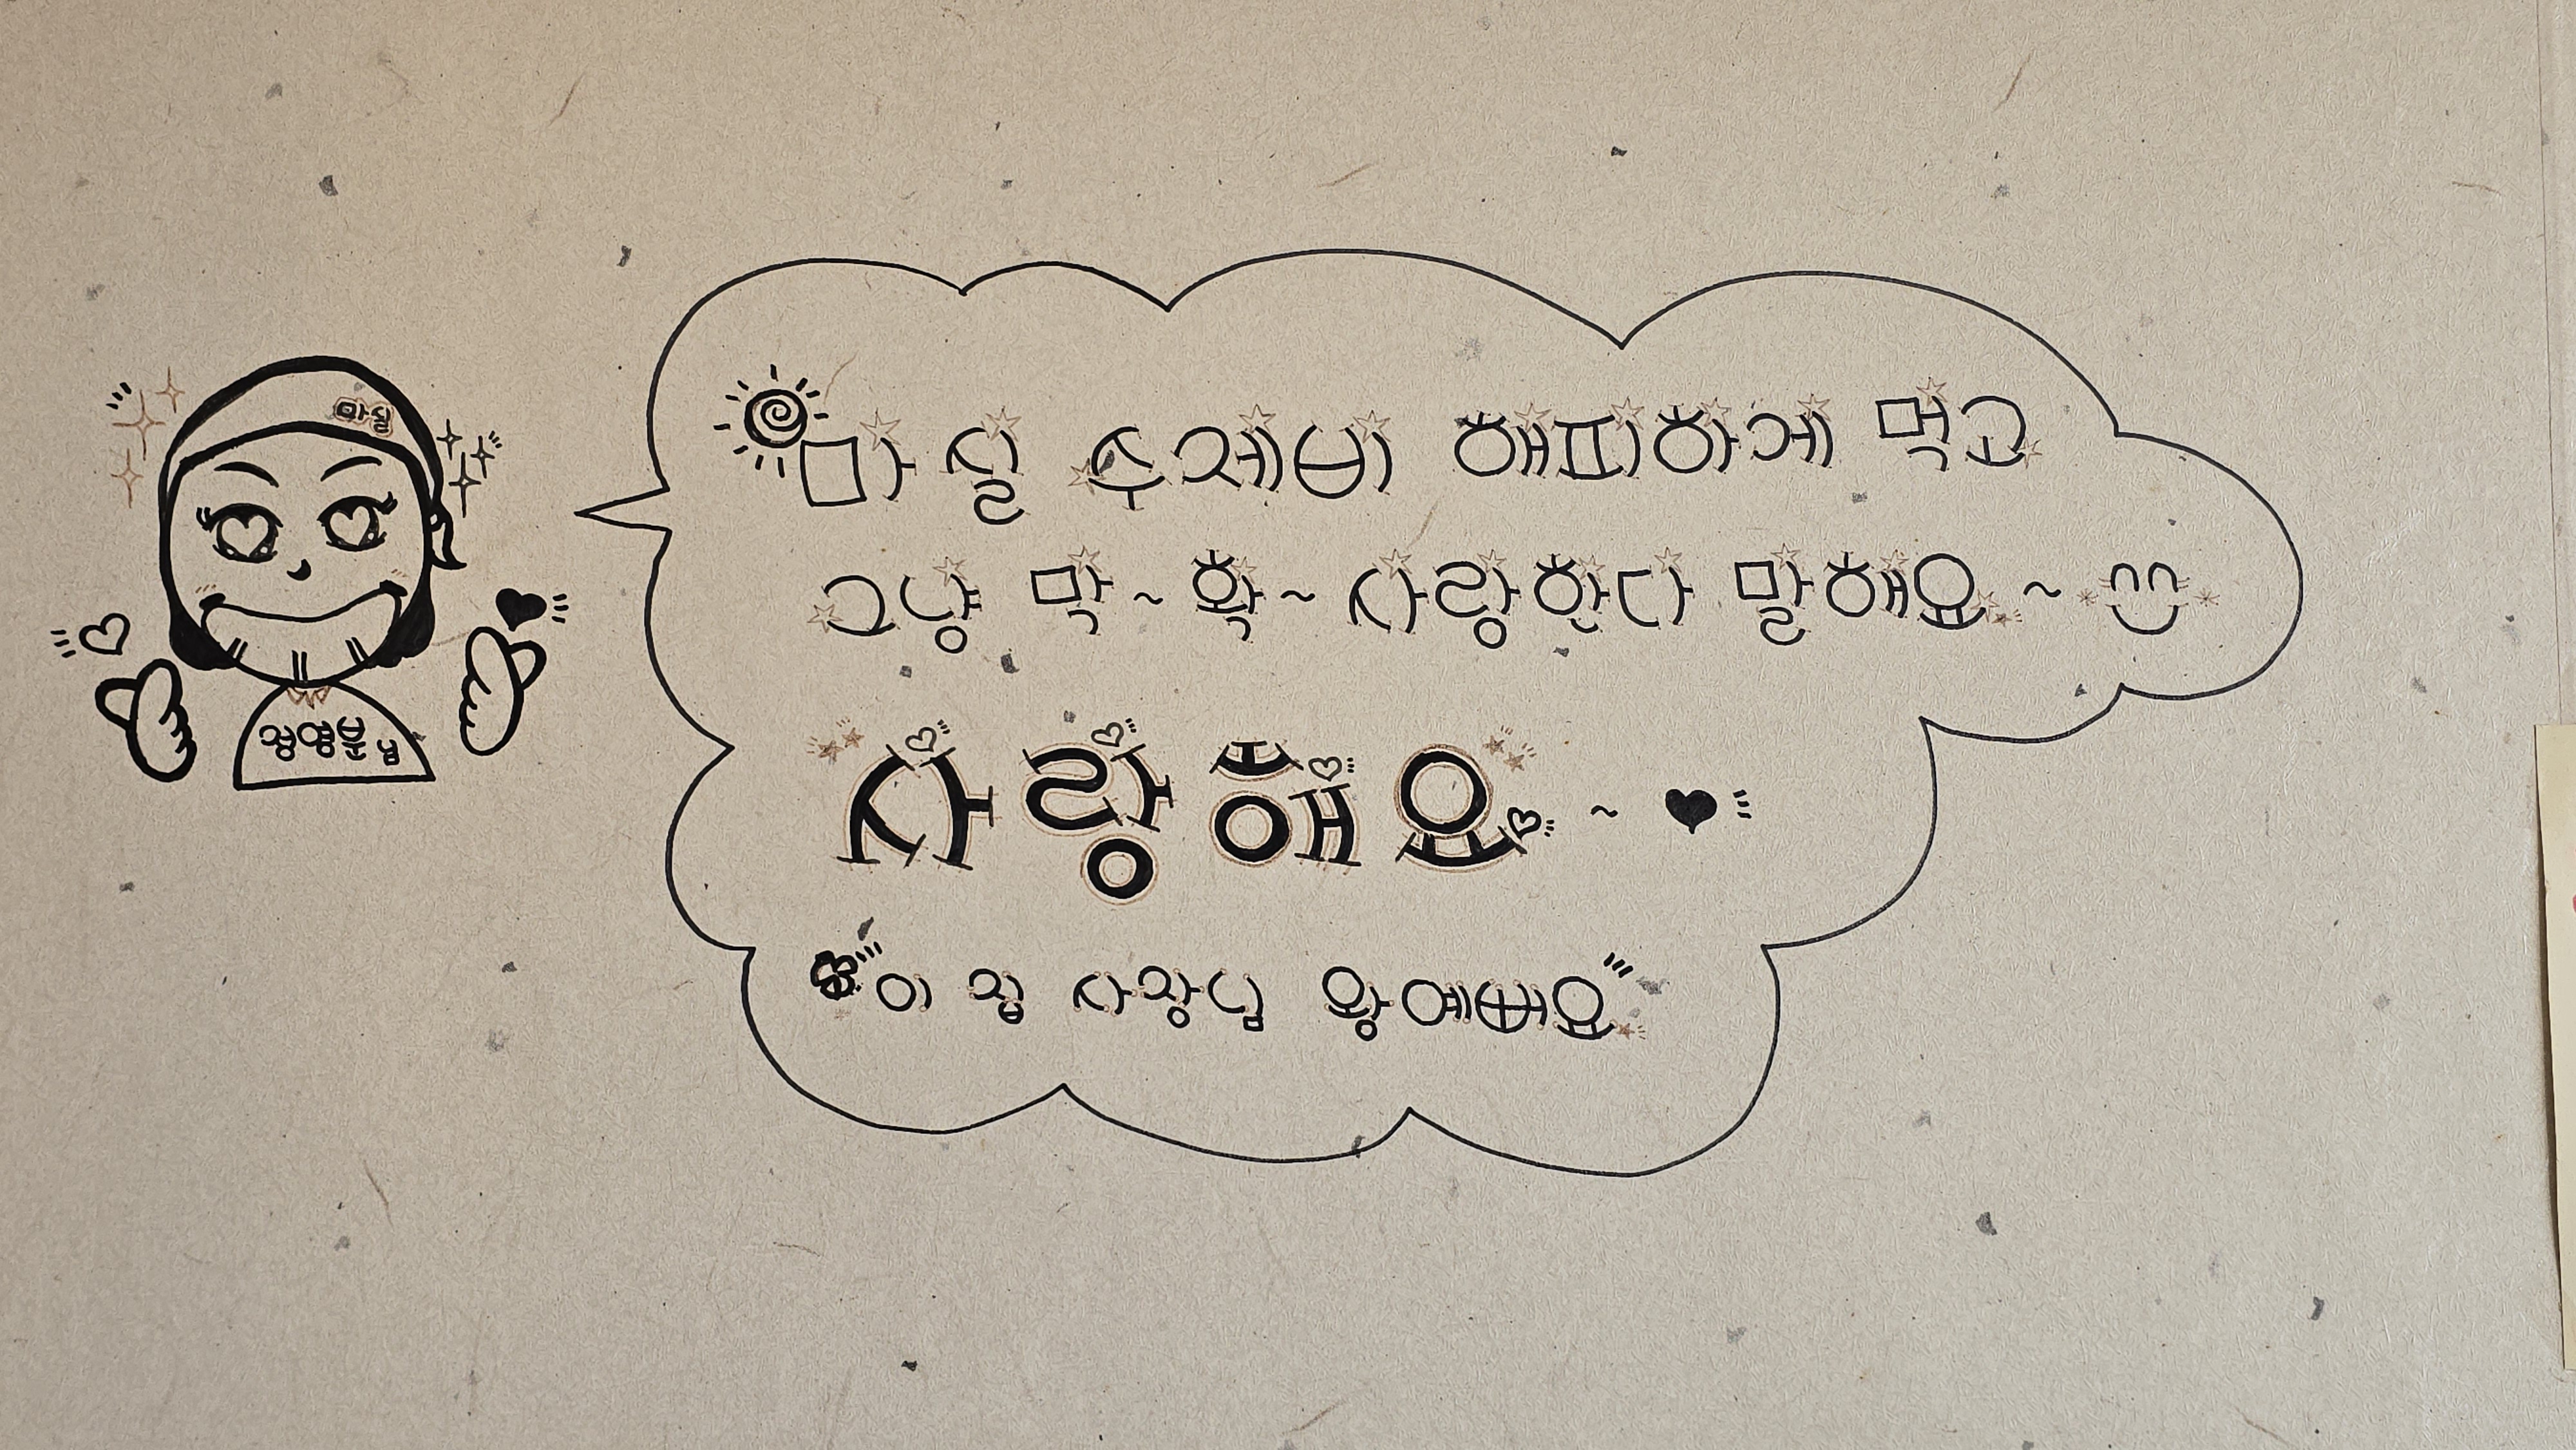 마실
마실 수제비 해피하게 먹고
그냥 막~ 확~ 사랑한다 말해요~
사랑해요~
이 집 사장님 왕예뻐요